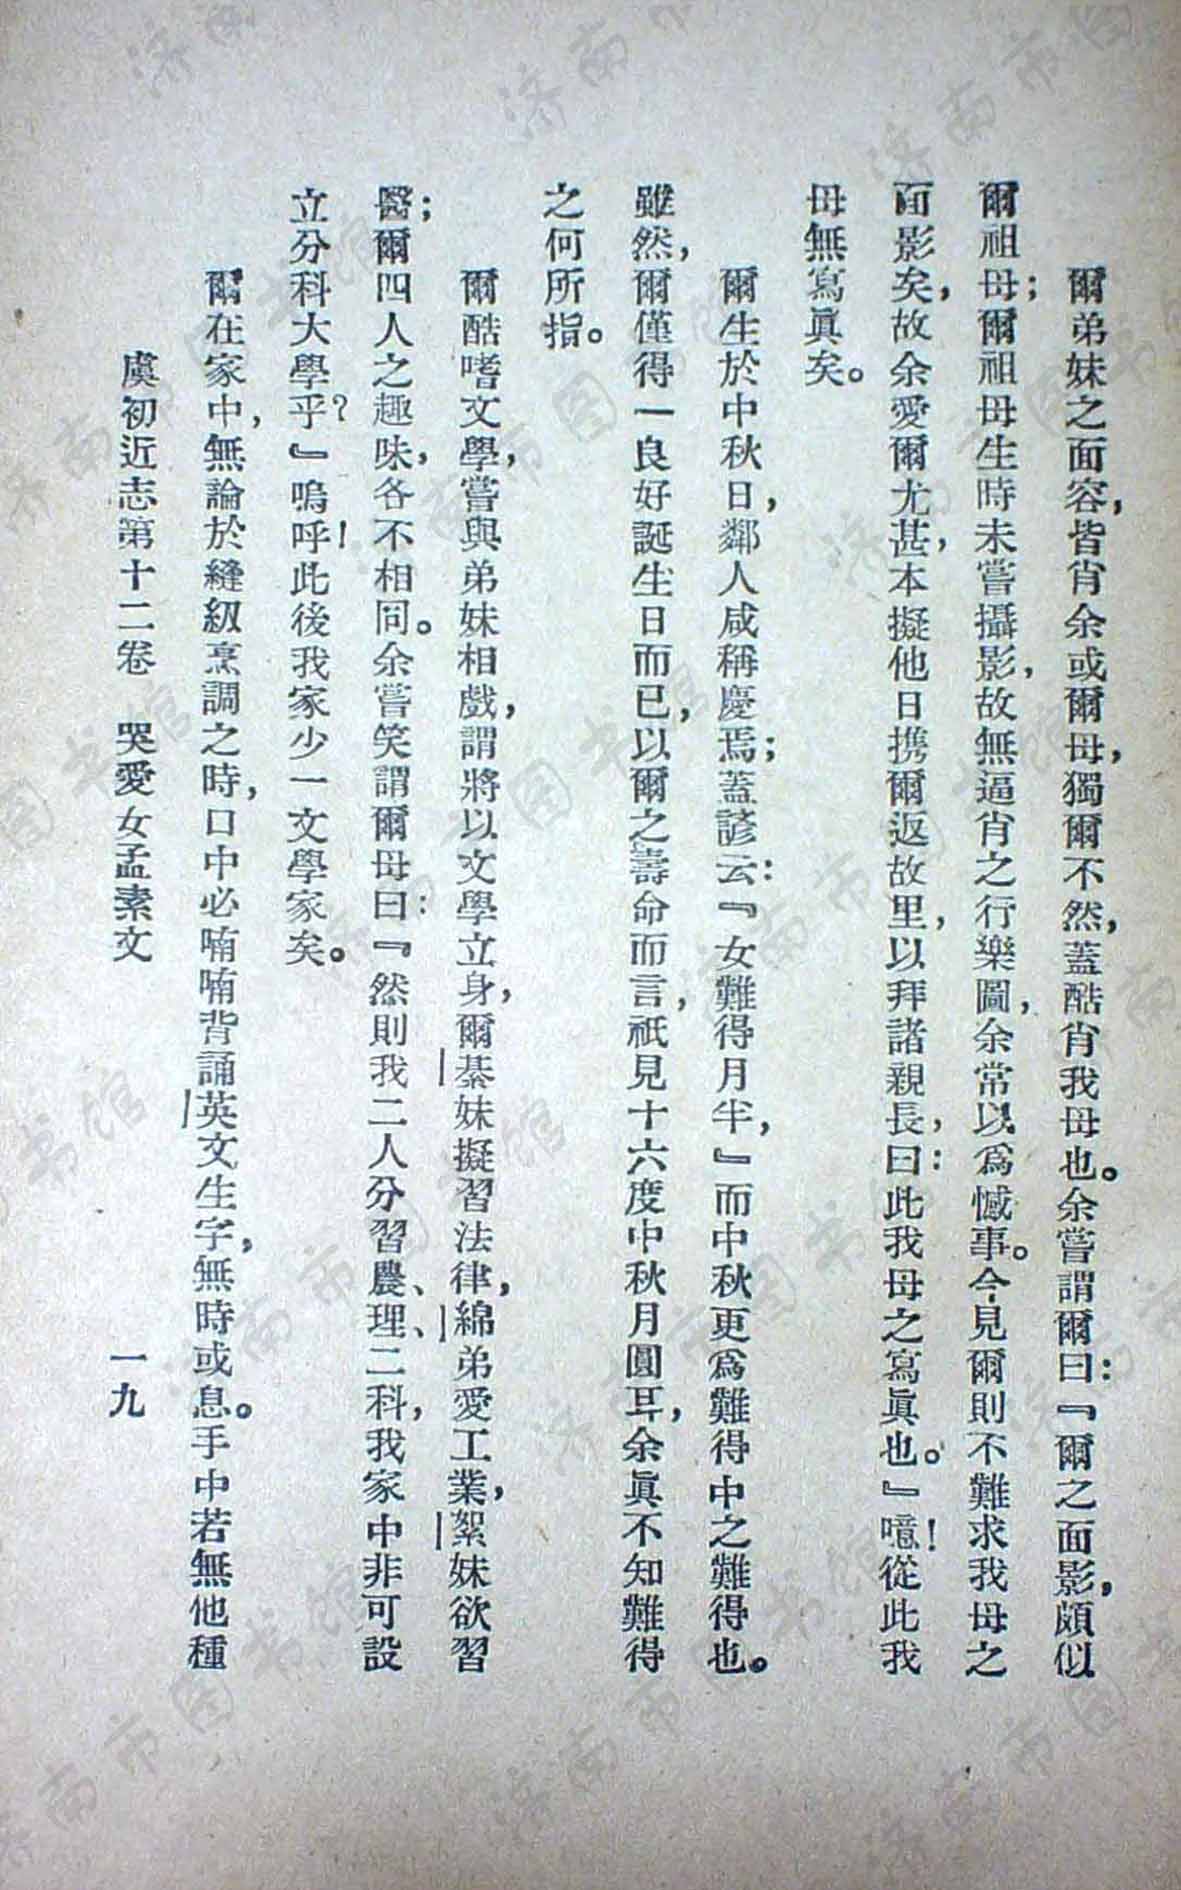 爾弟妹之面容，皆肖余或爾母，獨爾不然，蓋酷肖我母也。余嘗謂爾曰：『爾之面影，頗似
爾祖母；爾祖母生時未嘗攝影，故無逼肖之行樂圖，余常以爲憾事。今見爾則不難求我母之
面影矣，故余愛爾尤甚，本擬他日携爾返故里，以拜諸親長，曰：此我母之寫眞也。』噫！從此我
母無寫眞矣。
爾生於中秋日，鄰人咸稱慶焉；蓋諺云：『女難得月半，』而中秋更爲難得中之難得也。
雖然，爾僅得一良好誕生日而已，以爾之壽命而言，祇見十六度中秋月圓耳，余眞不知難得
之何所指。
爾酷嗜文學，嘗與弟妹相戲，謂將以文學立身，爾綦妹擬習法律，綿弟愛工業，絮妹欲習
醫；爾四人之趣味，各不相同。余嘗笑謂爾母曰：『然則我二人分習農、理、二科，我家中非可設
立分科大學乎？』嗚呼！此後我家少一文學家矣。
爾在家中，無論於縫紉烹調之時，口中必喃喃背誦英文生字，無時或息。手中若無他種
虞初近志第十二卷　哭愛女孟素文　一九
济南市图书馆